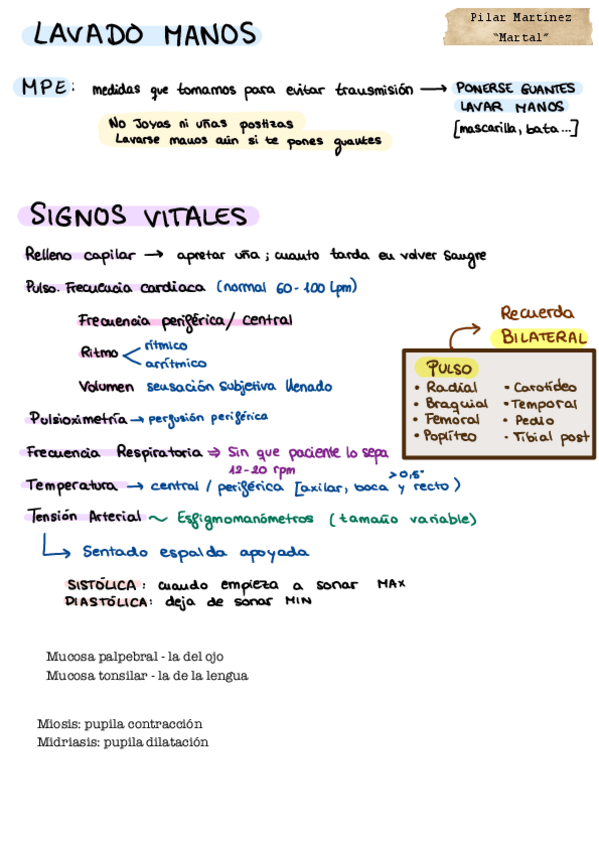 Pilar Martinez
"Martal"
LAVADO MANOS
MPE: medidas que tomamos para evitar transmisión → PONERSE GUANTES
LAVAR MANOS
[mascarilla, bata...]
No Joyas ni uñas postizas
Lavarse manos aún si te pones guantes
SIGNOS VITALES
Relleno capilar → apretar uña; cuanto tarda en volver sangre
Pulso. Frecuencia cardiaca (normal 60-100 lpm)
Frecuencia periférica / central
Ritmo
rítmico
arrítmico
Volumen sensación subjetiva llenado
Recuerda
BILATERAL
PULSO
• Radial
• Braquial
• Femoral
• Poplíteo
• Carotídeo
• Temporal
• Pedio
• Tibial post
Pulsioximetría → perfusión periférica
Frecuencia Respiratoria ⇒ Sin que paciente lo sepa
12-20 rpm
>0,5°
Temperatura → central / periférica [axilar, boca y recto)
Tensión Arterial ~ Esfigmomanómetros (tamaño variable)
↳ Sentado espalda apoyada
SISTÓLICA: cuando empieza a sonar MAX
DIASTÓLICA: deja de sonar MIN
Mucosa palpebral - la del ojo
Mucosa tonsilar - la de la lengua
Miosis: pupila contracción
Midriasis: pupila dilatación